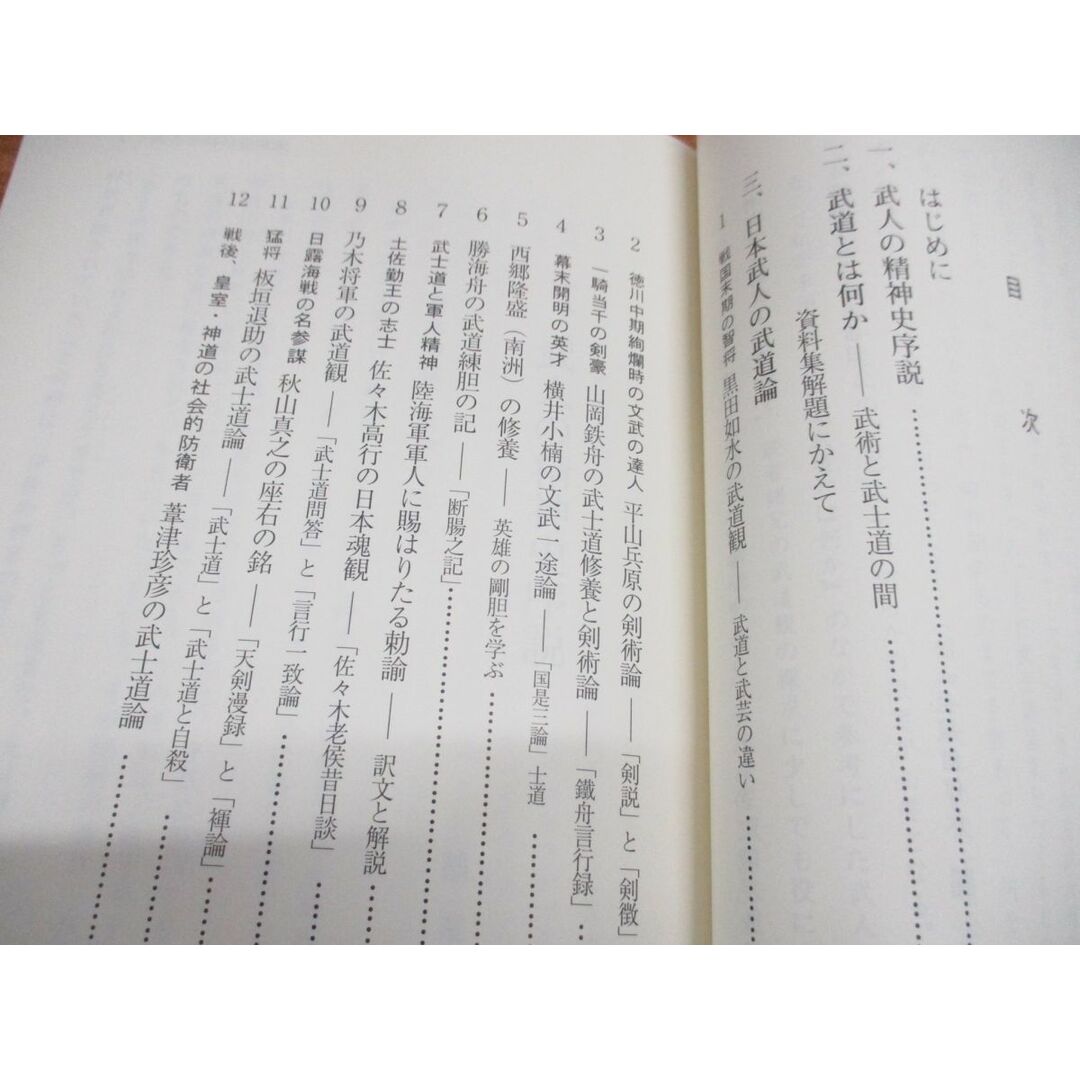 目 次
はじめに
一、武人の精神史序説
二、武道とは何か——武術と武士道の間
資料集解題にかえて
三、日本武人の武道論
1 戦国末期の智将 黒田如水の武道観——武道と武芸の違い
2 徳川中期絢爛時の文武の達人 平山兵原の剣術論——「剣説」と「剣徴」
3 一騎当千の剣豪 山岡鉄舟の武士道修養と剣術論——「鐵舟言行録」
4 幕末開明の英才 横井小楠の文武一途論——「国是三論」士道
5 西郷隆盛(南洲)の修養——英雄の剛胆を学ぶ
6 勝海舟の武道練胆の記——「断腸之記」
7 武士道と軍人精神 陸海軍軍人に賜はりたる勅諭——訳文と解説
8 土佐勤王の志士 佐々木高行の日本魂観——「佐々木老侯昔日談」
9 乃木将軍の武道観——「武士道問答」と「言行一致論」
10 日露海戦の名参謀 秋山真之の座右の銘——「天剣漫録」と「褌論」
11 猛将 板垣退助の武士道論——「武士道」と「武士道と自殺」
12 戦後、皇室・神道の社会的防衛者 葦津珍彦の武士道論